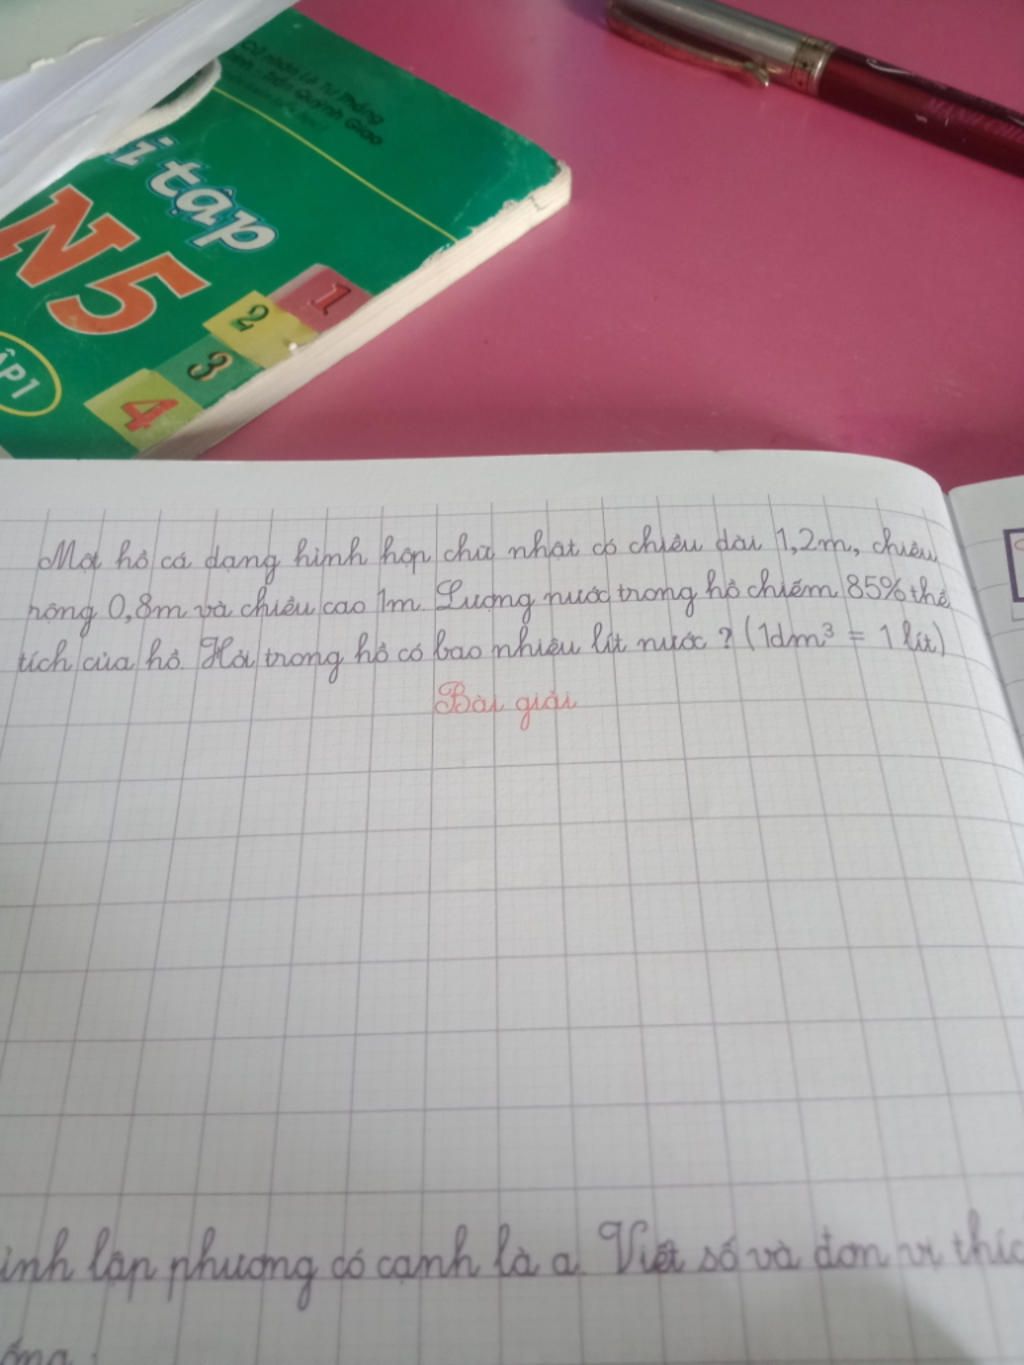 Cử nhân Lê Tứ Phóng
Quỳnh Giao
i tập
N5
ẬP1
1
2
3
4
Một hồ cá dạng hình hộp chữ nhật có chiều dài 1,2m, chiều
rộng 0,8m và chiều cao 1m. Lượng nước trong hồ chiếm 85% thể
tích của hồ. Hỏi trong hồ có bao nhiêu lít nước ? (1dm³ = 1 lít)
Bài giải
ình lập phương có cạnh là a. Viết số và đơn vị thíc
ống :